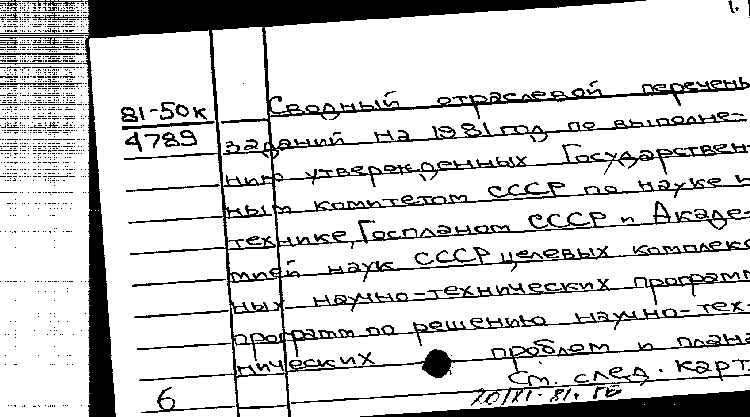 1.
81-50к
4789
Сводный отраслевой перечень
заданий на 1981 год по выполне-
нию утвержденных Государствен-
ным комитетом СССР по науке и
технике, Госпланом СССР и Акаде-
мией наук СССР целевых комплекс
ных научно-технических программ
программ по решению научно-тех-
нических проблем и плана
См. след. карт.
6